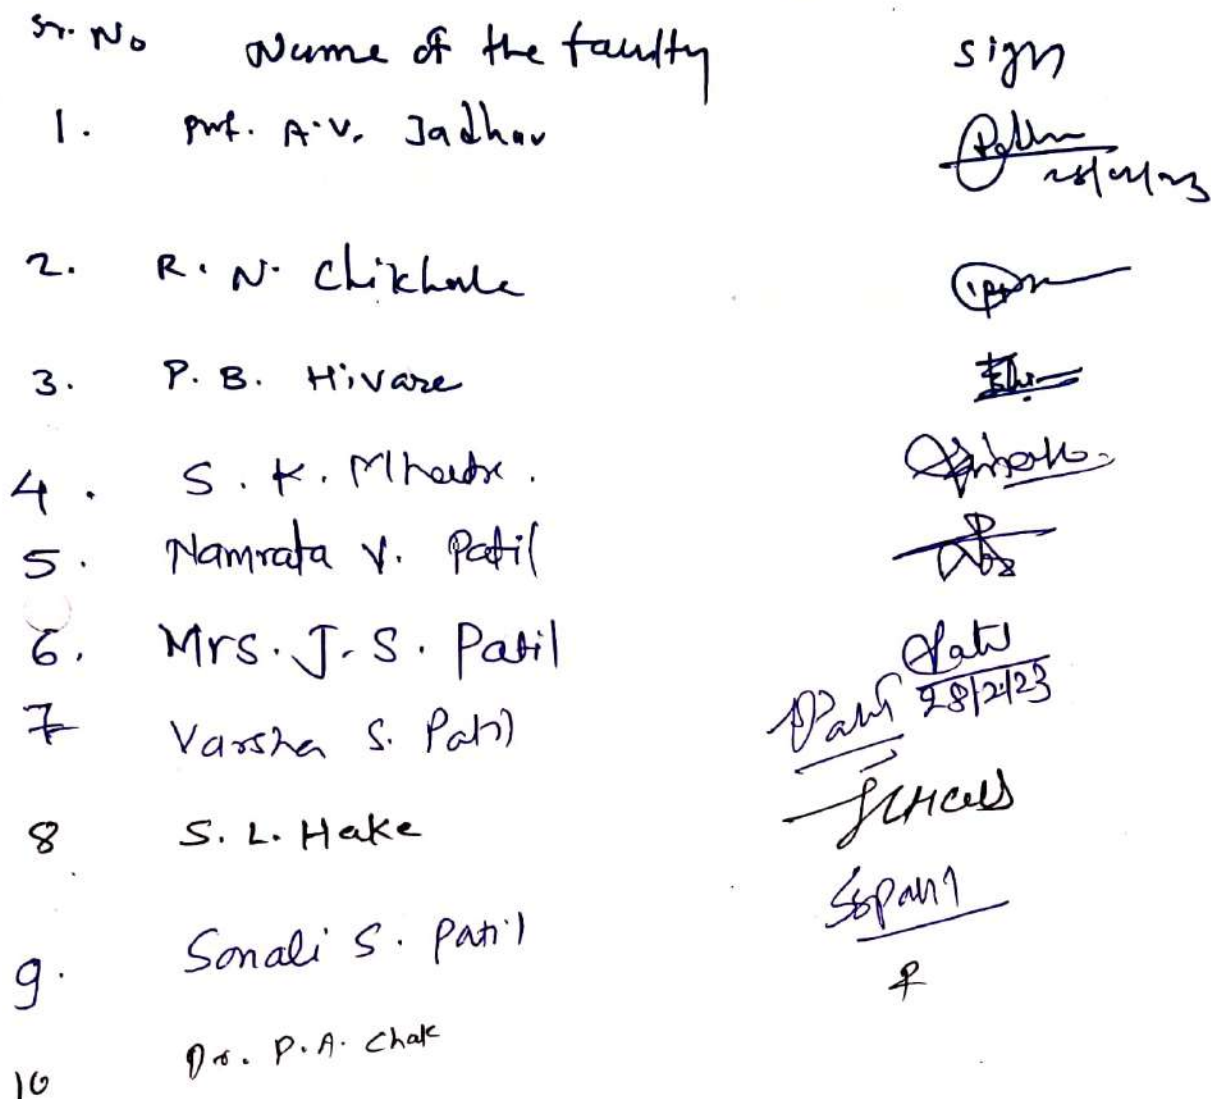 Sr. No Name of the faculty sign
1. Prof. A.V. Jadhav
2. R. N. Chikhale
3. P. B. Hivare
4. S. K. Mhatre.
5. Namrata V. Patil
6. Mrs. J. S. Patil Patil
28/2/23
7 Varsha S. Patil Patil
8 S. L. Hake
9. Sonali S. Patil SSPatil
10 Dr. P.A. Chak